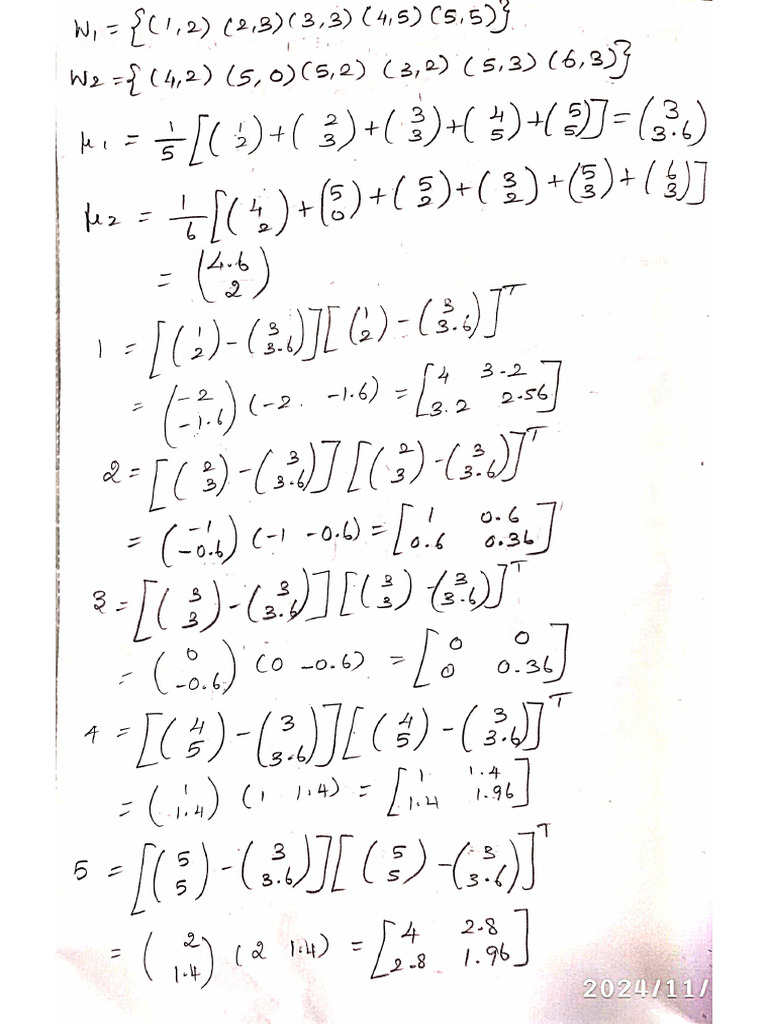 W1 = {(1,2) (2,3) (3,3) (4,5) (5,5)}
W2 = {(4,2) (5,0) (5,2) (3,2) (5,3) (6,3)}
μ1 = 1/5 [(1 2) + (2 3) + (3 3) + (4 5) + (5 5)] = (3 3.6)
μ2 = 1/6 [(4 2) + (5 0) + (5 2) + (3 2) + (5 3) + (6 3)]
= (4.6 2)
1 = [(1 2) - (3 3.6)] [(1 2) - (3 3.6)]^T
= (-2 -1.6) (-2 -1.6) = [4 3.2 3.2 2.56]
2 = [(2 3) - (3 3.6)] [(2 3) - (3 3.6)]^T
= (-1 -0.6) (-1 -0.6) = [1 0.6 0.6 0.36]
3 = [(3 3) - (3 3.6)] [(3 3) - (3 3.6)]^T
= (0 -0.6) (0 -0.6) = [0 0 0 0.36]
4 = [(4 5) - (3 3.6)] [(4 5) - (3 3.6)]^T
= (1 1.4) (1 1.4) = [1 1.4 1.4 1.96]
5 = [(5 5) - (3 3.6)] [(5 5) - (3 3.6)]^T
= (2 1.4) (2 1.4) = [4 2.8 2.8 1.96]
2024/11/